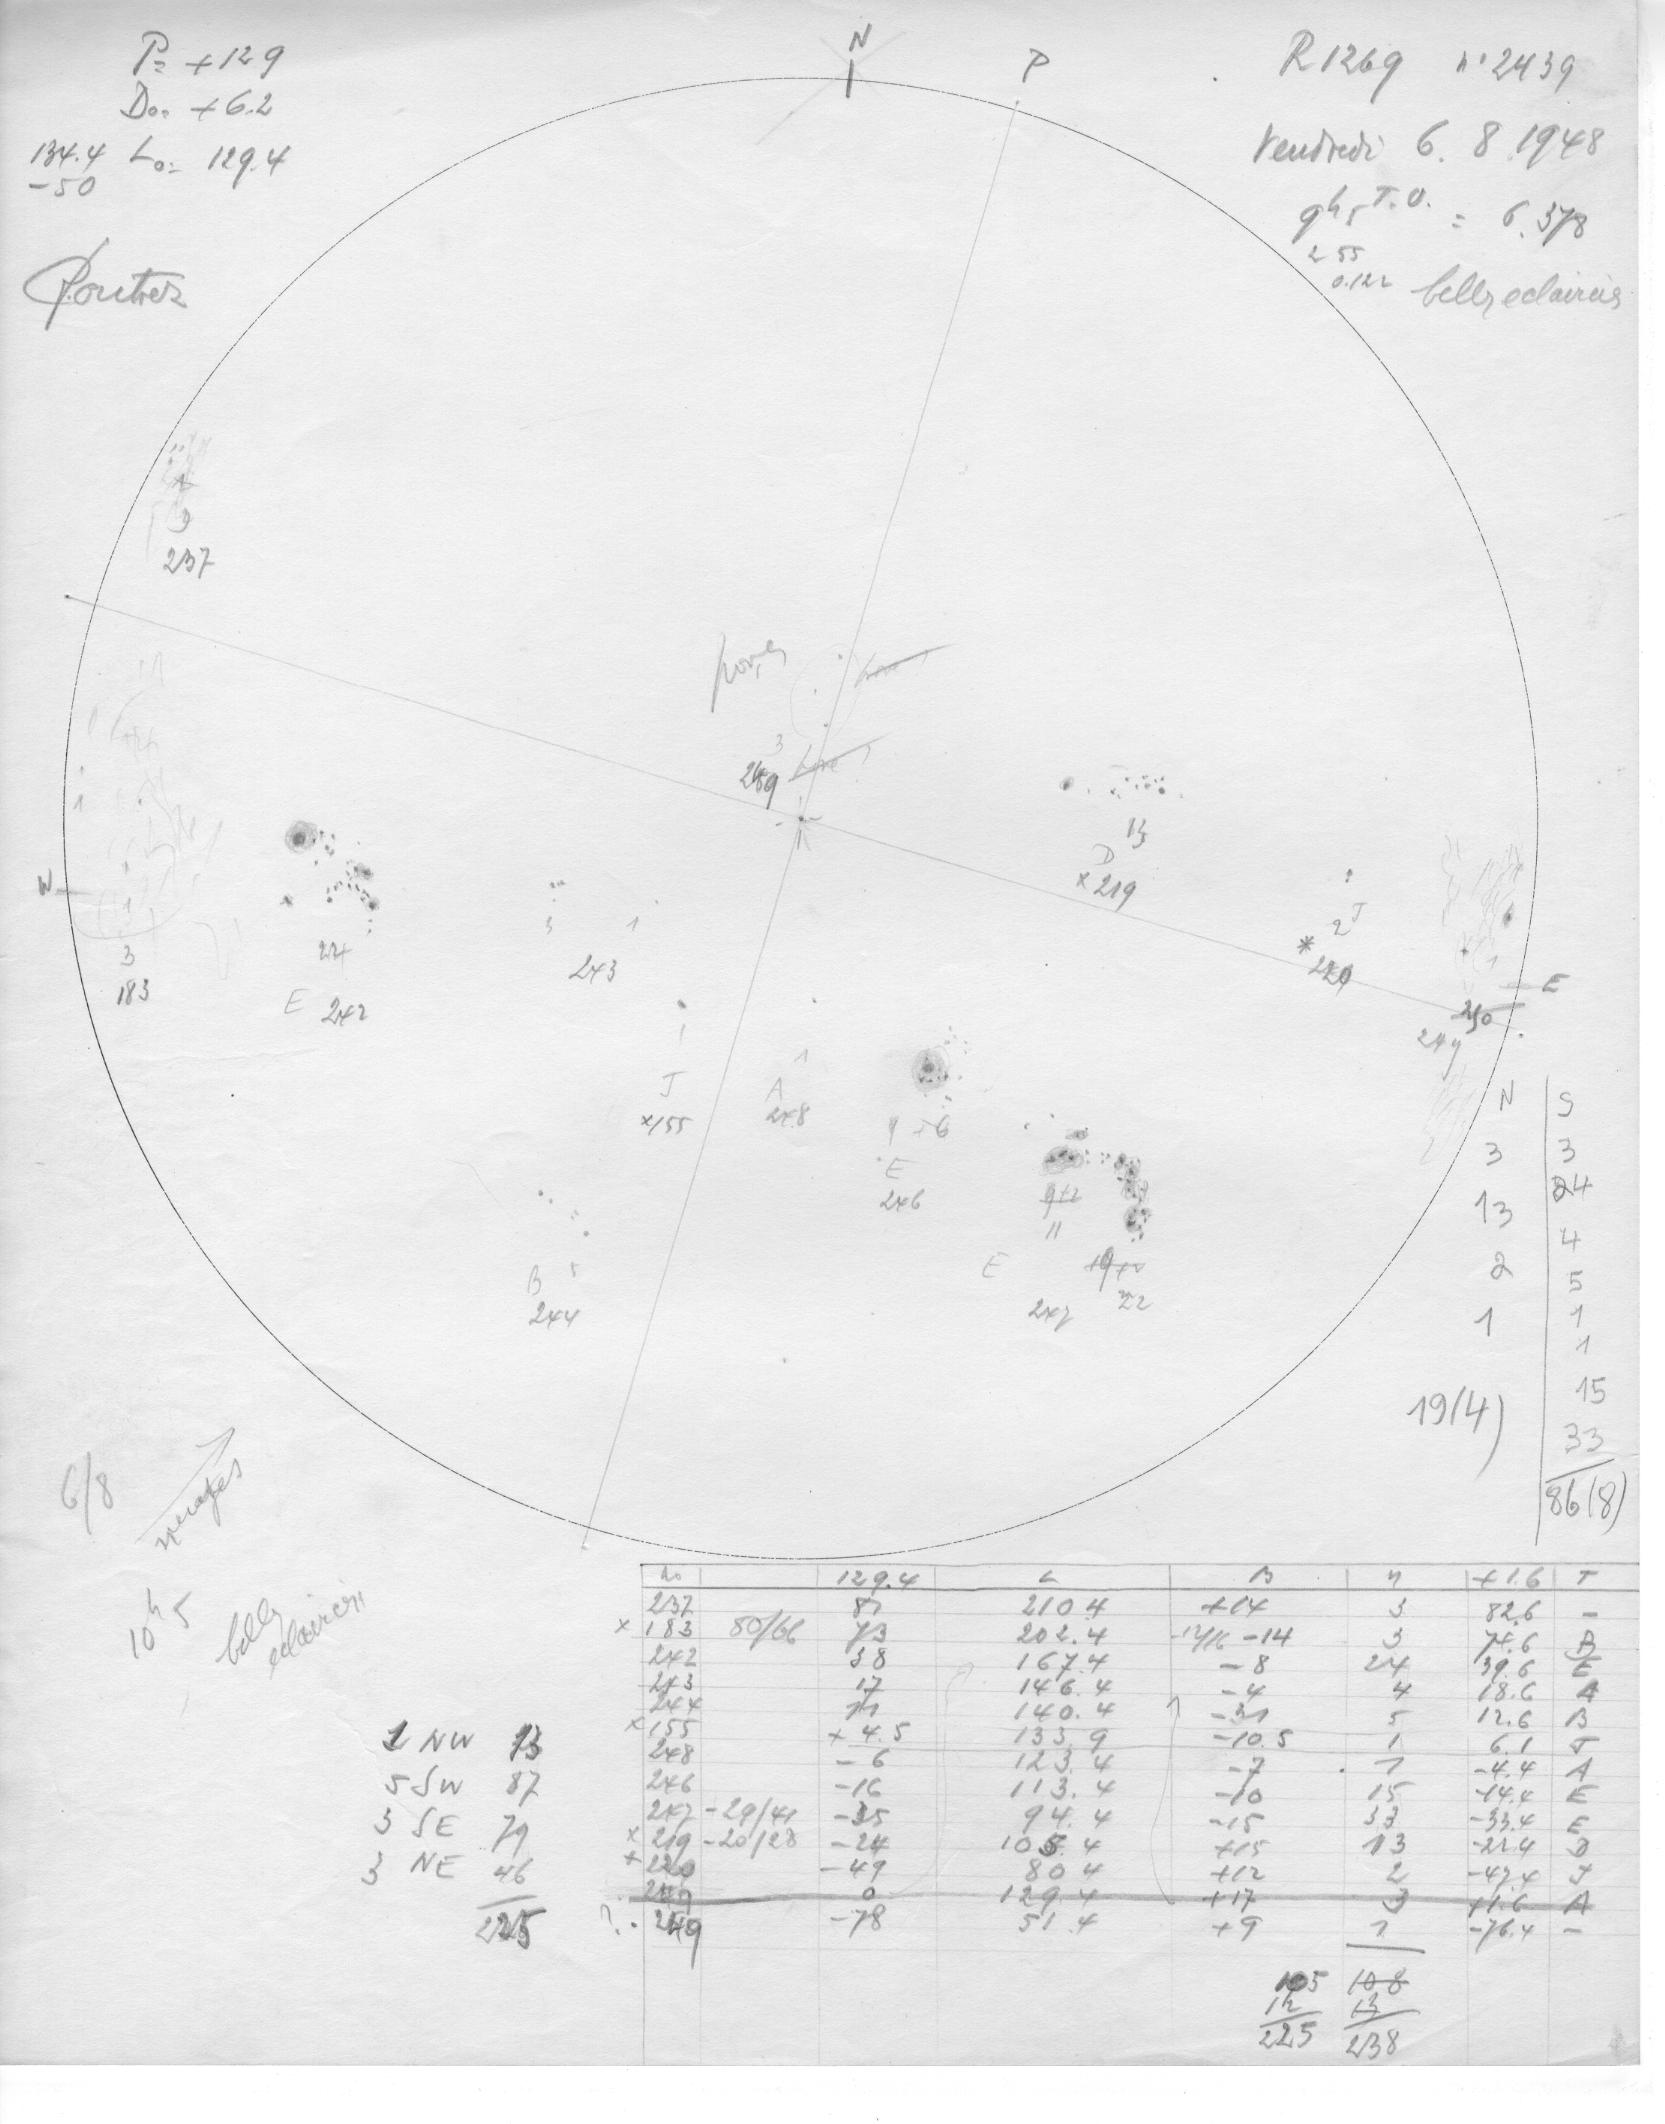 P= +12 9
Do= +6.2
134.4 Lo= 129.4
-50
N
P
R1269 n° 2439
Vendredi 6. 8 1948
9h5 T.U. = 6.378
2 55
0.122
237
W
1
1
3
183
24
E 242
3
1
243
3
249
13
D
x 219
J
2
*
220
E
250
249
1
J
x155
1
A
248
9 +6
E
246
9+2
11
E
247
22
B 5
244
N S
3 3
13 24
2 4
1 5
1
1
15
19(4) 33
86(8)
6/8
nuages
10h 5
1 NW 13
5 SW 87
3 SE 79
3 NE 46
225
No 129.4 L B n +1.6 T
237 81 210 4 +14 3 82.6 -
x 183 80/66 73 202.4 -12/16 -14 3 74.6 B
242 38 167.4 -8 24 39.6 E
243 17 146.4 -4 4 18.6 A
244 11 140.4 -31 5 12.6 B
x 155 + 4.5 133.9 -10.5 1 6.1 J
248 - 6 123.4 -7 1 -4.4 A
246 -16 113.4 -10 15 -14.4 E
247 -29/41 -35 94.4 -15 33 -33.4 E
x 219 -20/28 -24 105.4 +15 13 -22.4 D
+ 220 -49 80 4 +12 2 -47.4 J
249 0 129.4 +17 3 +1.6 A
? 249 -78 51.4 +9 1 -76.4 -
105 108
12 13
225 238